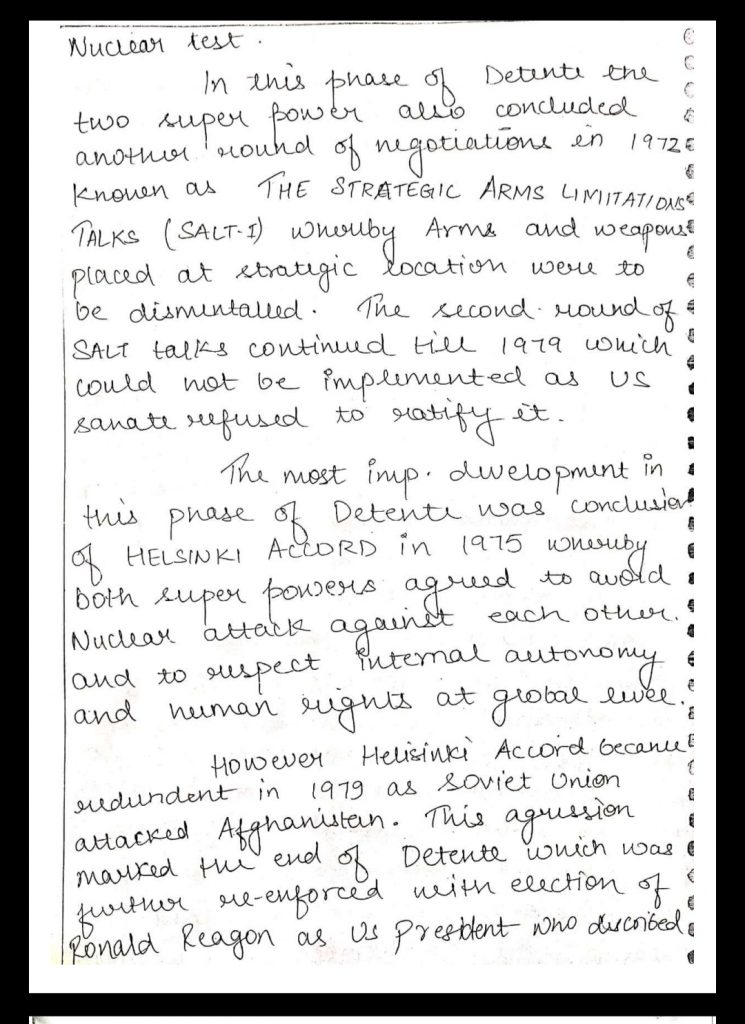 Nuclear test.
In this phase of Detente the
two super power also concluded
another round of negotiations in 1972
known as THE STRATEGIC ARMS LIMITATIONS
TALKS (SALT-I) whereby Arms and weapons
placed at strategic location were to
be dismentalled. The second round of
SALT talks continued till 1979 which
could not be implemented as US
sanate refused to ratify it.
The most imp. development in
this phase of Detente was conclusion
of HELSINKI ACCORD in 1975 whereby
both super powers agreed to avoid
Nuclear attack against each other.
and to respect internal autonomy
and human rights at global level.
However Helisinki Accord became
redundent in 1979 as soviet Union
attacked Afghanistan. This agression
marked the end of Detente which was
further re-enforced with election of
Ronald Reagon as US President who discribed